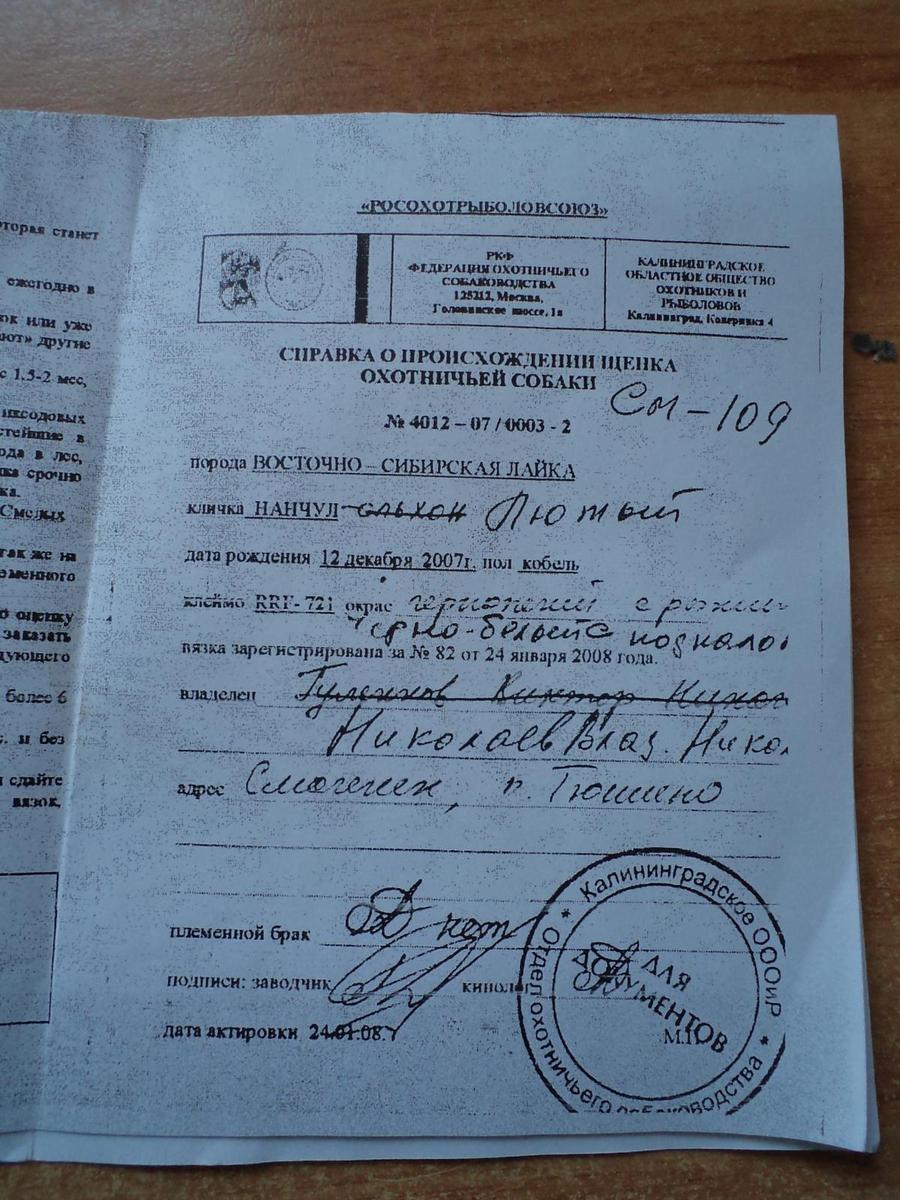 оторая станет
ежегодно в
ок или уже
ают» другие
с 1.5-2 мес,
иксодовых
стейшие в
ода в лес,
ка срочно
ка.
Смелых
так же на
еменного
ю оценку
заказать
дующего
более 6
с. и без
и сдайте
вязок,
«РОСОХОТРЫБОЛОВСОЮЗ»
РКФ
ФЕДЕРАЦИЯ ОХОТНИЧЬЕГО
СОБАКОВОДСТВА
125212, Москва,
Головинское шоссе, 1а
КАЛИНИНГРАДСКОЕ
ОБЛАСТНОЕ ОБЩЕСТВО
ОХОТНИКОВ И
РЫБОЛОВОВ
Калининград, Коперника 4
СПРАВКА О ПРОИСХОЖДЕНИИ ЩЕНКА
ОХОТНИЧЬЕЙ СОБАКИ
См-109
№ 4012 – 07 / 0003 - 2
порода ВОСТОЧНО – СИБИРСКАЯ ЛАЙКА
кличка НАНЧУЛ ольхон Лютый
дата рождения 12 декабря 2007г. пол кобель
клеймо RRF- 721 окрас с рыжим
Черно-белый с подпало
вязка зарегистрирована за № 82 от 24 января 2008 года.
владелец Виктор
Николаев Влад. Нико
адрес п. Тюшино
племенной брак нет
подписи: заводчик кинолог
дата актировки 24.01.08.
М.П.
* Калининградское ОООиР *
Отдел охотничьего собаководства
ДЛЯ
ДОКУМЕНТОВ